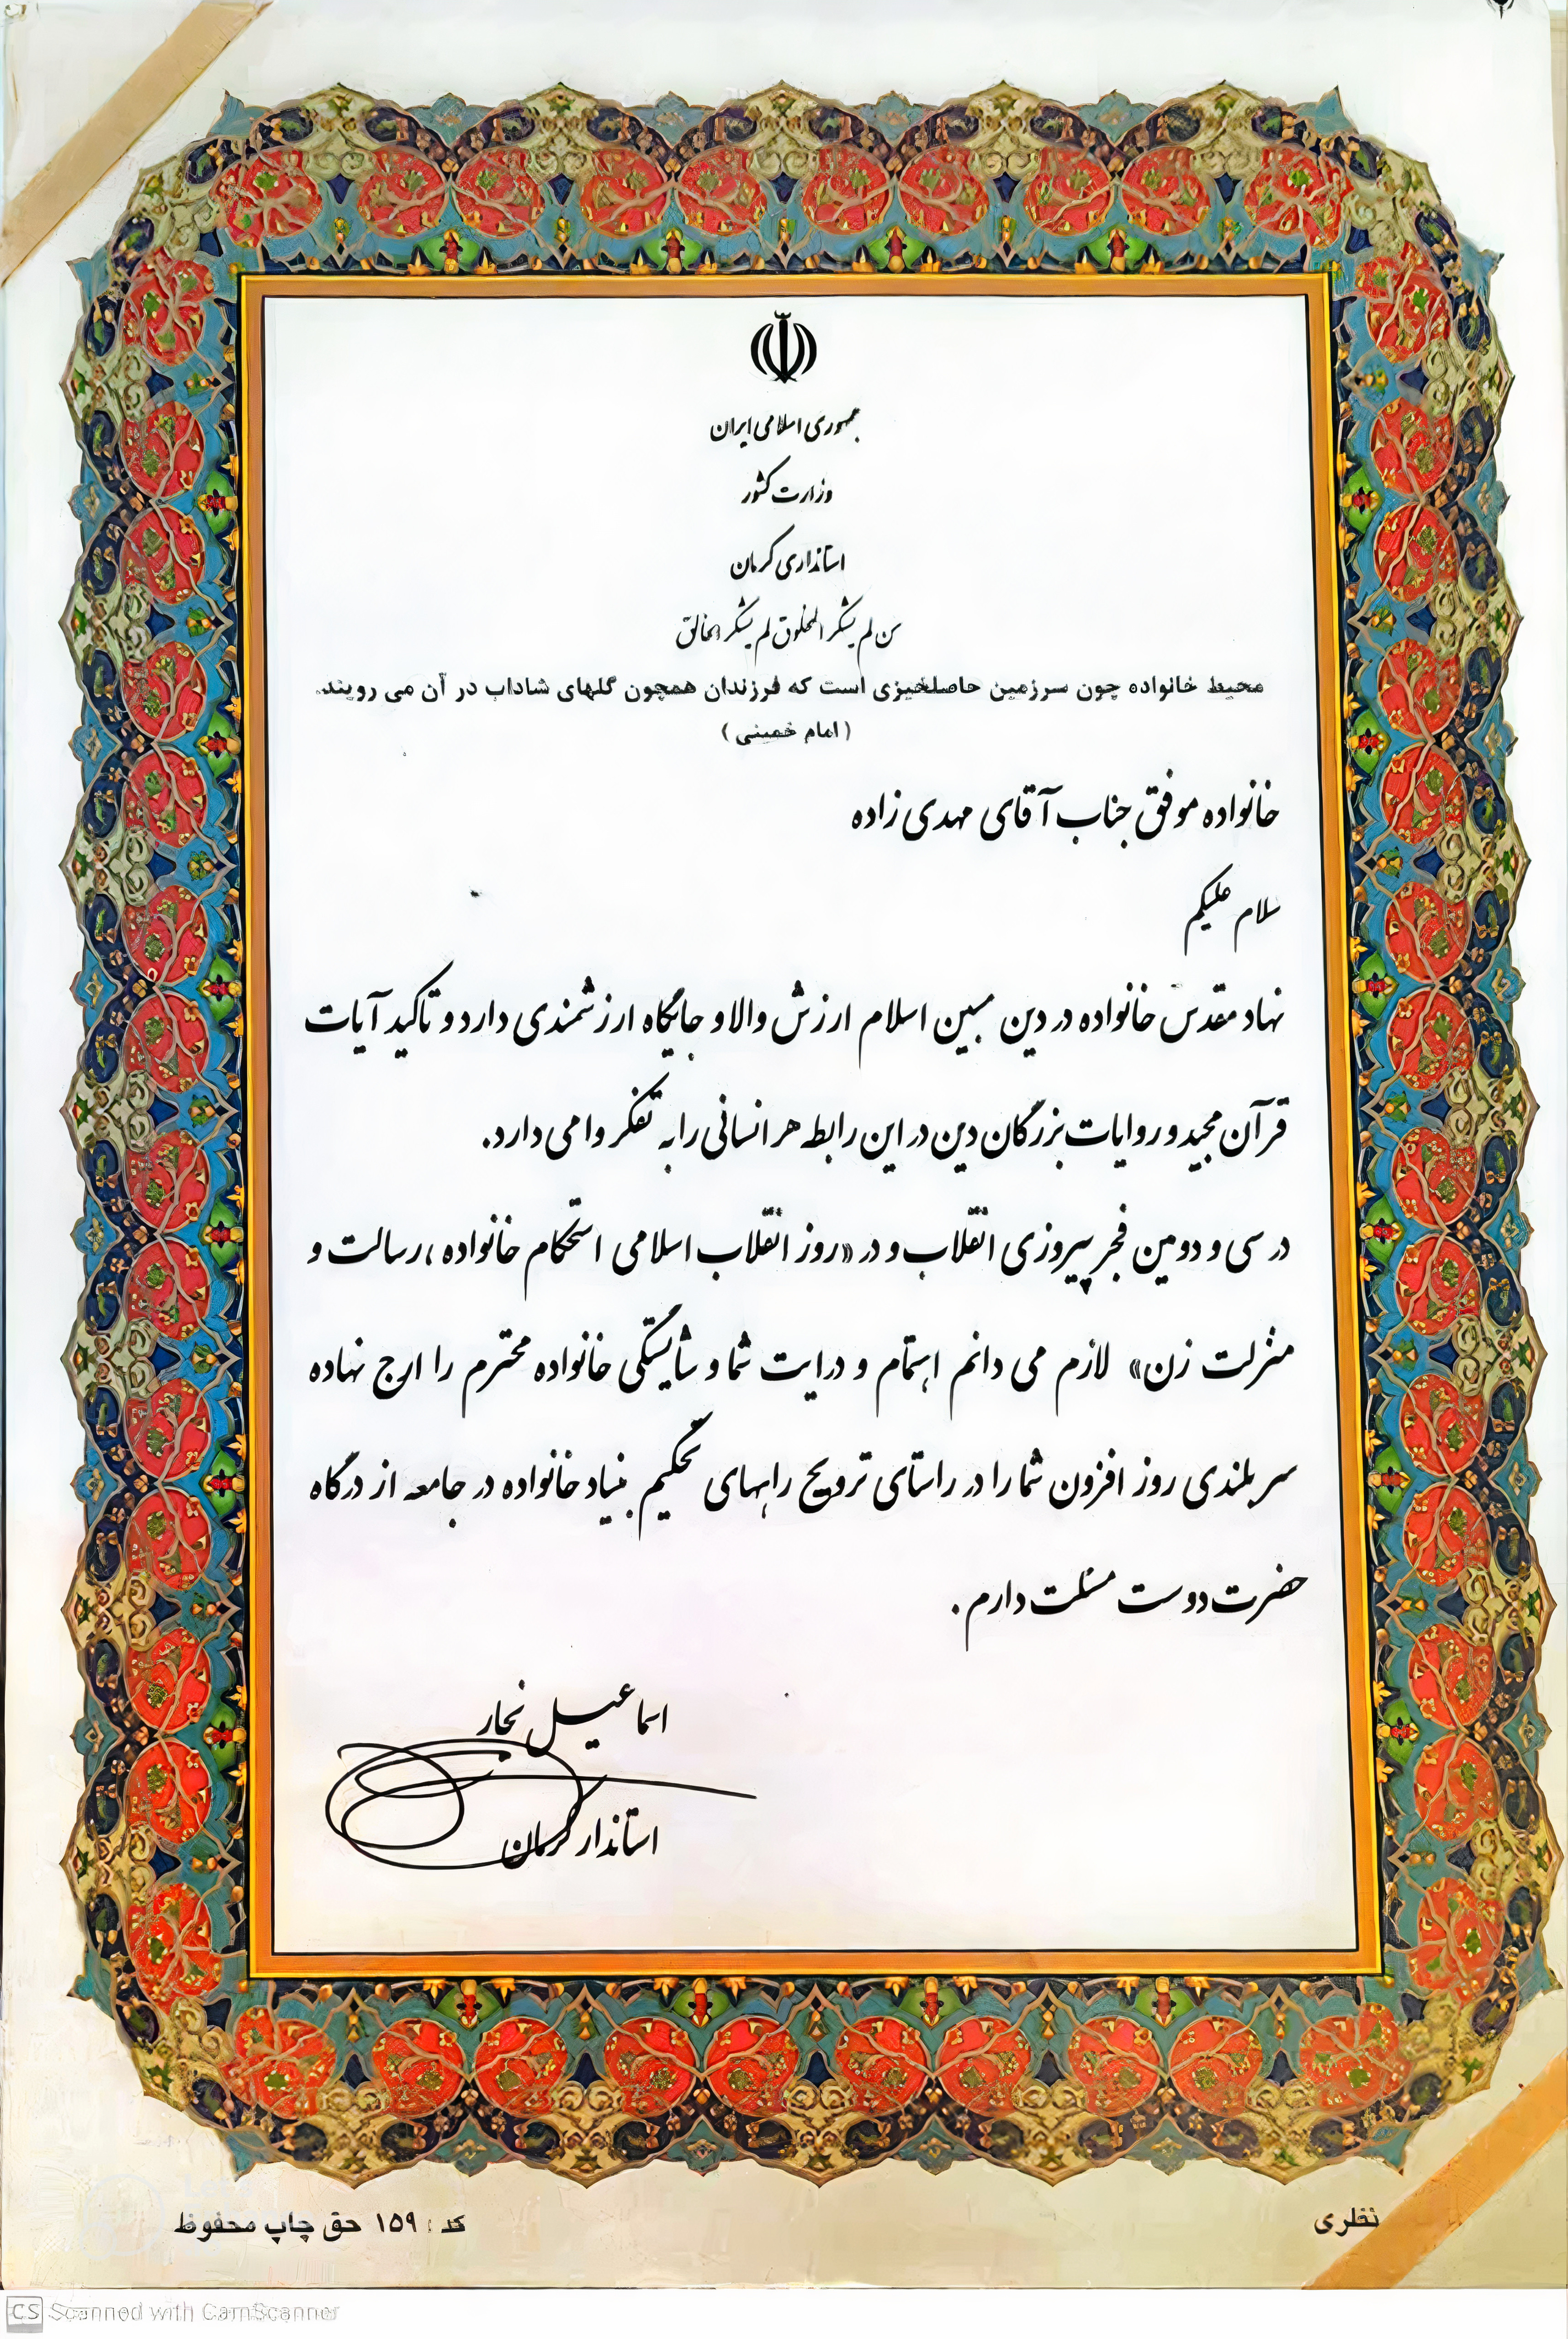 جمهوری اسلامی ایران
وزارت کشور
استانداری کرمان
من لم یشکر المخلوق لم یشکر الخالق
محیط خانواده چون سرزمین حاصلخیزی است که فرزندان همچون گلهای شاداب در آن می رویند.
( امام خمینی )
خانواده موفق جناب آقای مهدی زاده
سلام علیکم
نهاد مقدس خانواده در دین مبین اسلام ارزش والا و جایگاه ارزشمندی دارد و تاکید آیات
قرآن مجید و روایات بزرگان دین در این رابطه هر انسانی را به تفکر وا می دارد.
در سی و دومین فجر پیروزی انقلاب و در «روز انقلاب اسلامی استحکام خانواده ، رسالت و
منزلت زن» لازم می دانم اهتمام و درایت شما و شایستگی خانواده محترم را ارج نهاده
سر بلندی روز افزون شما را در راستای ترویج راههای تحکیم بنیاد خانواده در جامعه از درگاه
حضرت دوست مسئلت دارم .
اسماعیل نجار
استاندار کرمان
نظری
کد : ۱۵۹ حق چاپ محفوظ
CS Scanned with CamScanner